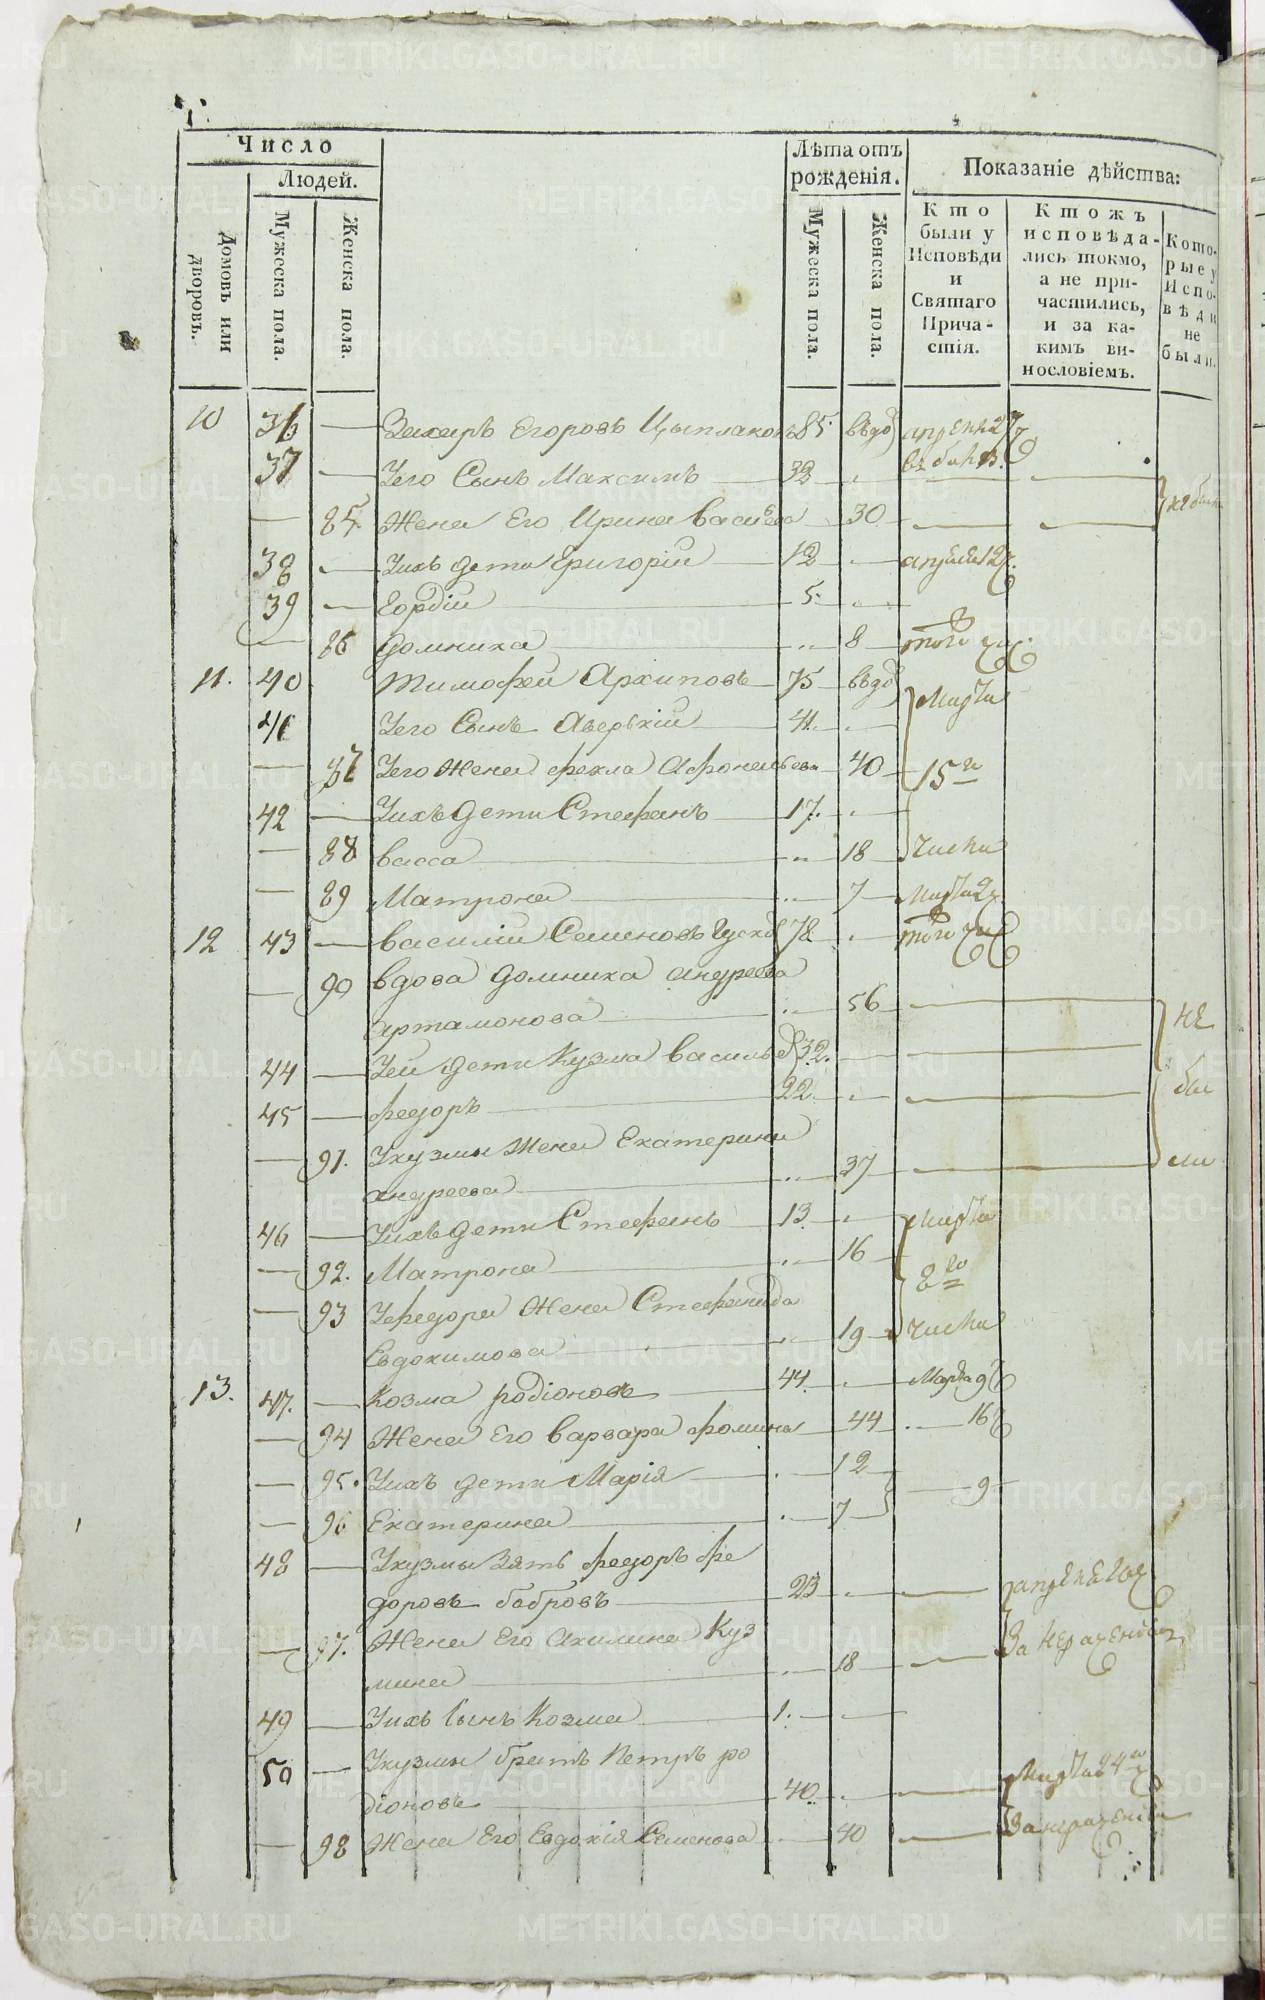 Число
Людей.
Лѣта отъ рожденія.
Показаніе дѣйства:
Домовъ или дворовъ.
Мужеска пола.
Женска пола.
Мужеска пола.
Женска пола.
Кто были у Исповѣди и Святаго Причастія.
Ктожъ исповѣдались токмо, а не причастились, и за какимъ винословіемъ.
Которые у Исповѣди не были.
10 36 — Захаръ Егоровъ Цыплаковъ 85 вдо
37 — Уего Сынъ Максимъ 32
— 85. Жена Его Ирина Васи 30 не были
38 — Уихъ дети Григорій 12 апреля 12
39 — Гордій 5
— 86 Домника 8 того чис
11. 40 Тимофей Архиповъ 75 вдо Марта
41 Уего Сынъ Аверкій 41
— 87 Уего Жена Фекла Афонасьева 40 15го
42 — Уихъ дети Стефанъ 17
— 88 васса 18 числа
— 89 Матрона 7 Марта 2
12 43 — василій Семеновъ 78 того чис
— 90 вдова Домника андреева
артамонова 56 не
44 — Уей дети Кузма васильев 32.
45 — федоръ 22 бы
— 91. Укузмы Жена Екатерина
андреева 37 ли
46 — Уихъ дети Стефанъ 13 Марта
— 92. Матрона 16 8го
— 93 Уфедора Жена Стефанида
Евдокимова 19 числа
13. 47. — Козма родіоновъ 44 Марта 9
— 94 Жена Его варвара фомина 44 16
— 95. Уихъ дети Марія 12
— 96 Екатерина 7 9
48 — Укузмы Зять федоръ фе
доровъ бобровъ 23
— 97. Жена Его Акилина Куз
мина 18
49 — Уихъ Сынъ Козма 1.
50 — Укузмы братъ Петръ ро
діоновъ 40 Марта 24го
— 98 Жена Его Евдокія Семенова 40
METRIKI.GASO-URAL.RU